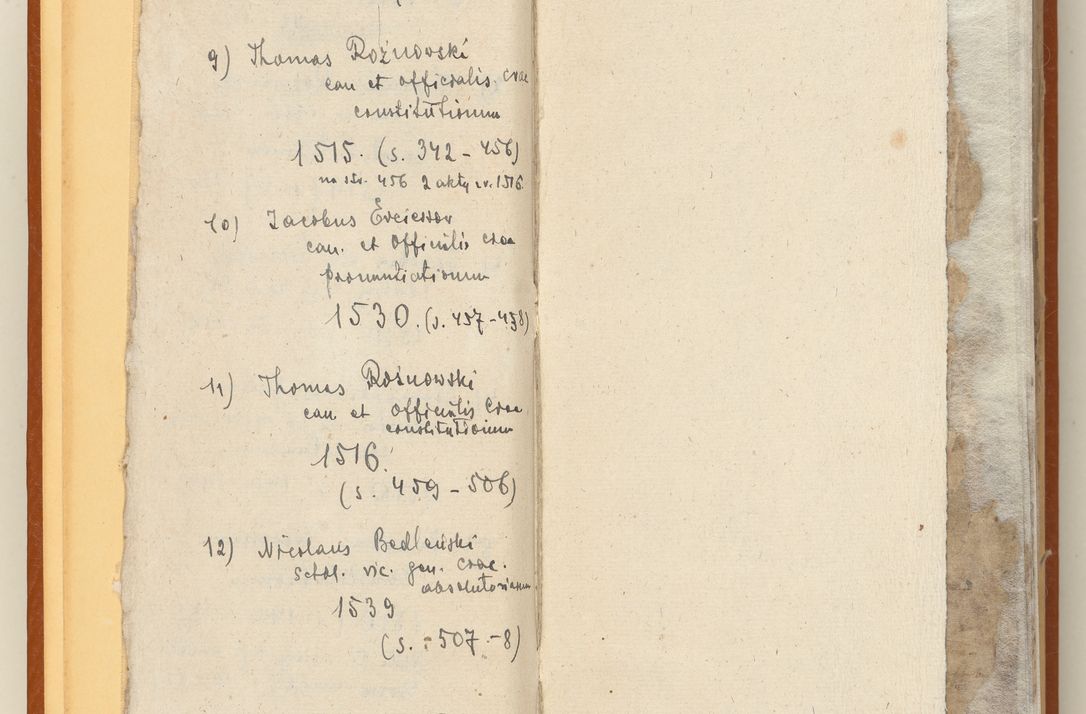 9) Thomas Rożnowski
can et officialis crac
constitutionum
1515. (s. 342 - 456)
na str. 456 2 akty z r. 1516.
10) Jacobus
can. et Officialis crac
pronuntiationum
1530. (s. 457-458)
11) Thomas Rożnowski
can et officialis Crac
constitutionum
1516.
(s. 459 - 506)
12) Nicolaus Bedleński
schol. vic. gen. crac.
absolutorianum
1539
(s. 507 - 8)